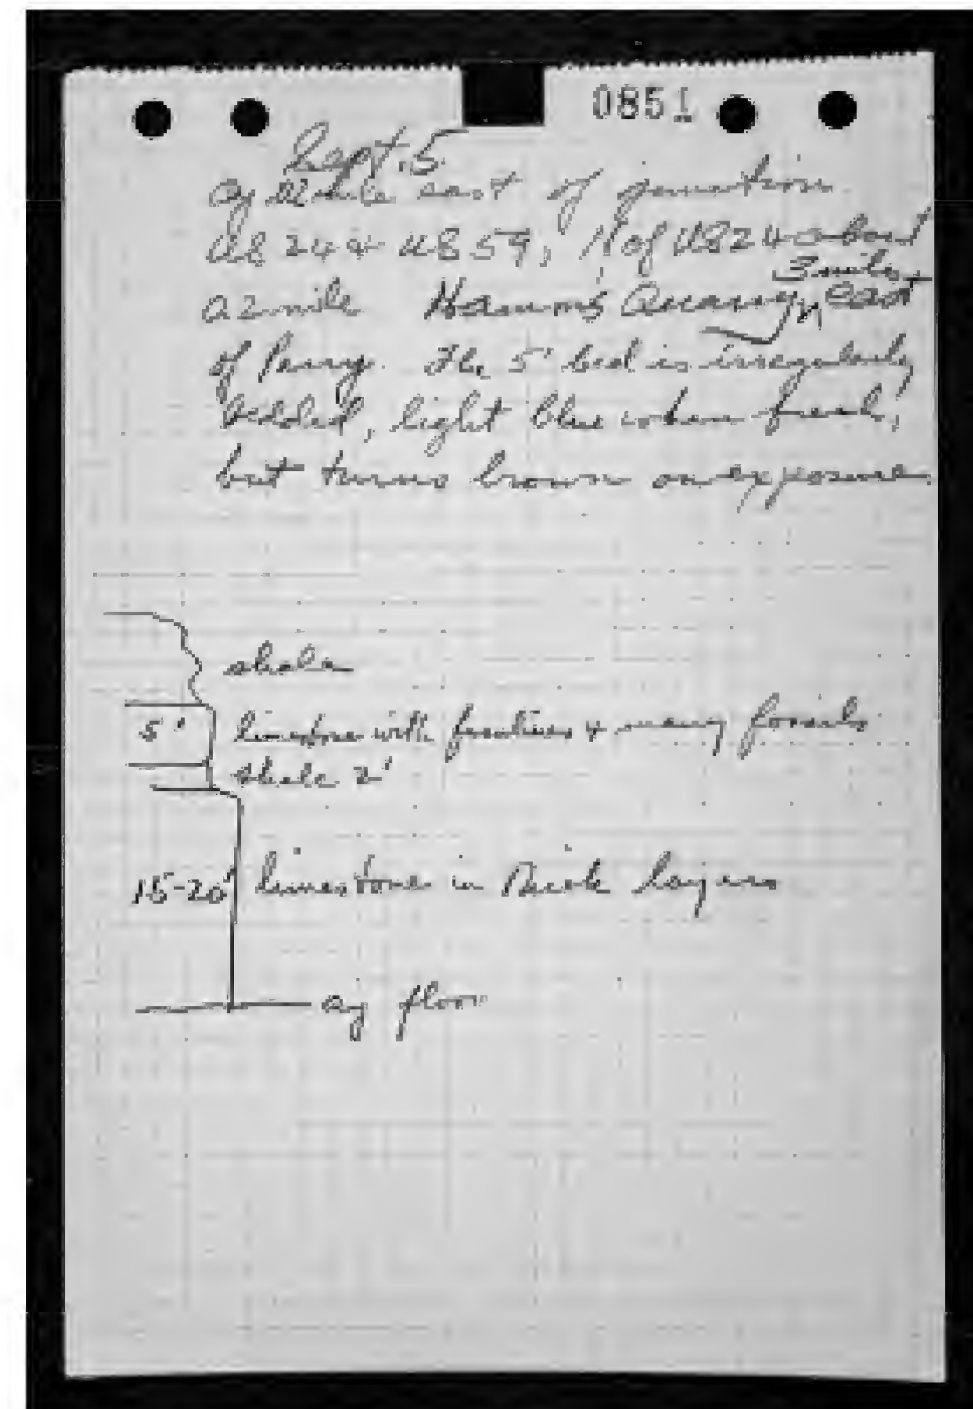 0851
Sept. 5
Qy mile east of junction
US 24 & US 59, N of US 24 about
3 miles
a 2 mile Hamm's Quarry, east
of Perry. The 5' bed is irregularly
bedded, light blue when fresh,
but turns brown on exposure.
shale
5' limestone with fusulines & many fossils
shale 2'
15-20' limestone in thick layers
qy floor